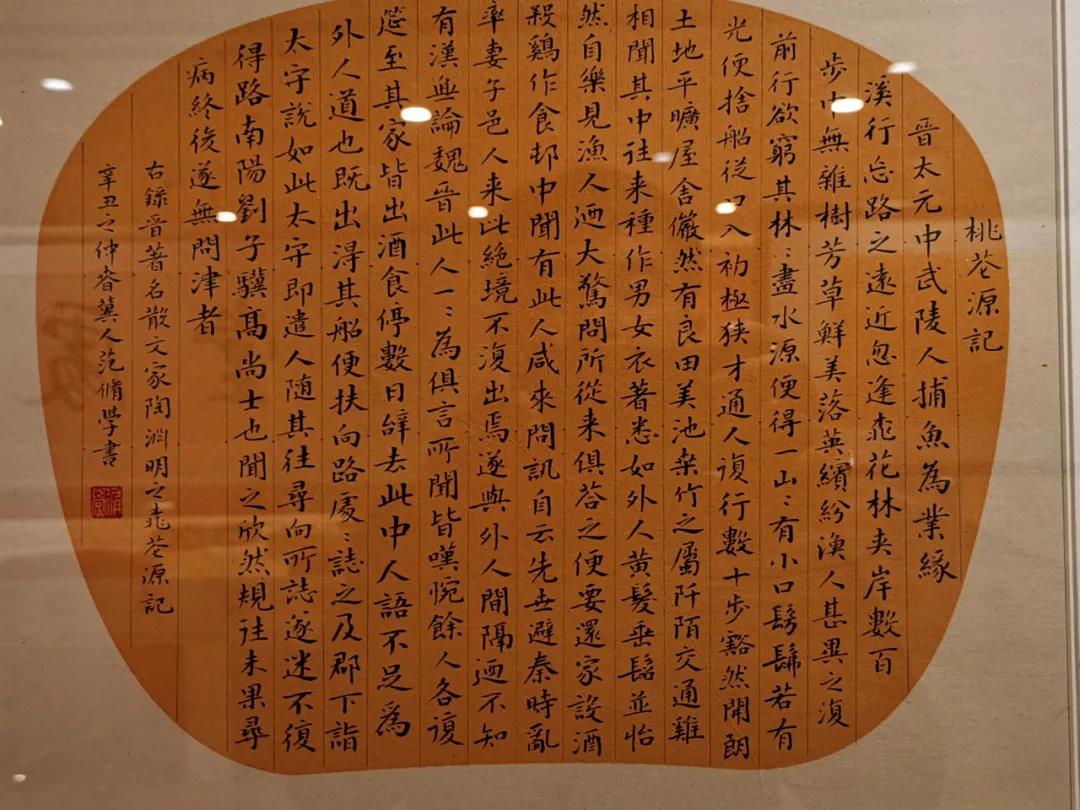 桃花源記
晉太元中武陵人捕魚為業緣
溪行忘路之遠近忽逢桃花林夾岸數百
步中無雜樹芳草鮮美落英繽紛漁人甚異之復
前行欲窮其林〻盡水源便得一山〻有小口髣髴若有
光便捨船從口入初極狹才通人復行數十步豁然開朗
土地平曠屋舍儼然有良田美池桑竹之屬阡陌交通雞
相聞其中往来種作男女衣著悉如外人黃髮垂髫並怡
然自樂見漁人迺大驚問所從来俱荅之便要還家設酒
殺鷄作食邨中聞有此人咸來問訊自云先世避秦時亂
率妻子邑人来此絕境不復出焉遂與外人間隔迺不知
有漢無論魏晉此人一〻為俱言所聞皆嘆惋餘人各復
筵至其家皆出酒食停數日辭去此中人語不足為
外人道也既出得其船便扶向路處〻誌之及郡下詣
太守說如此太守即遣人随其往尋向所誌遂迷不復
得路南陽劉子驥髙尚士也聞之欣然規往未果尋
病終後遂無問津者
右錄晉著名散文家陶淵明之桃花源記
辛丑之仲春冀人范脩學書